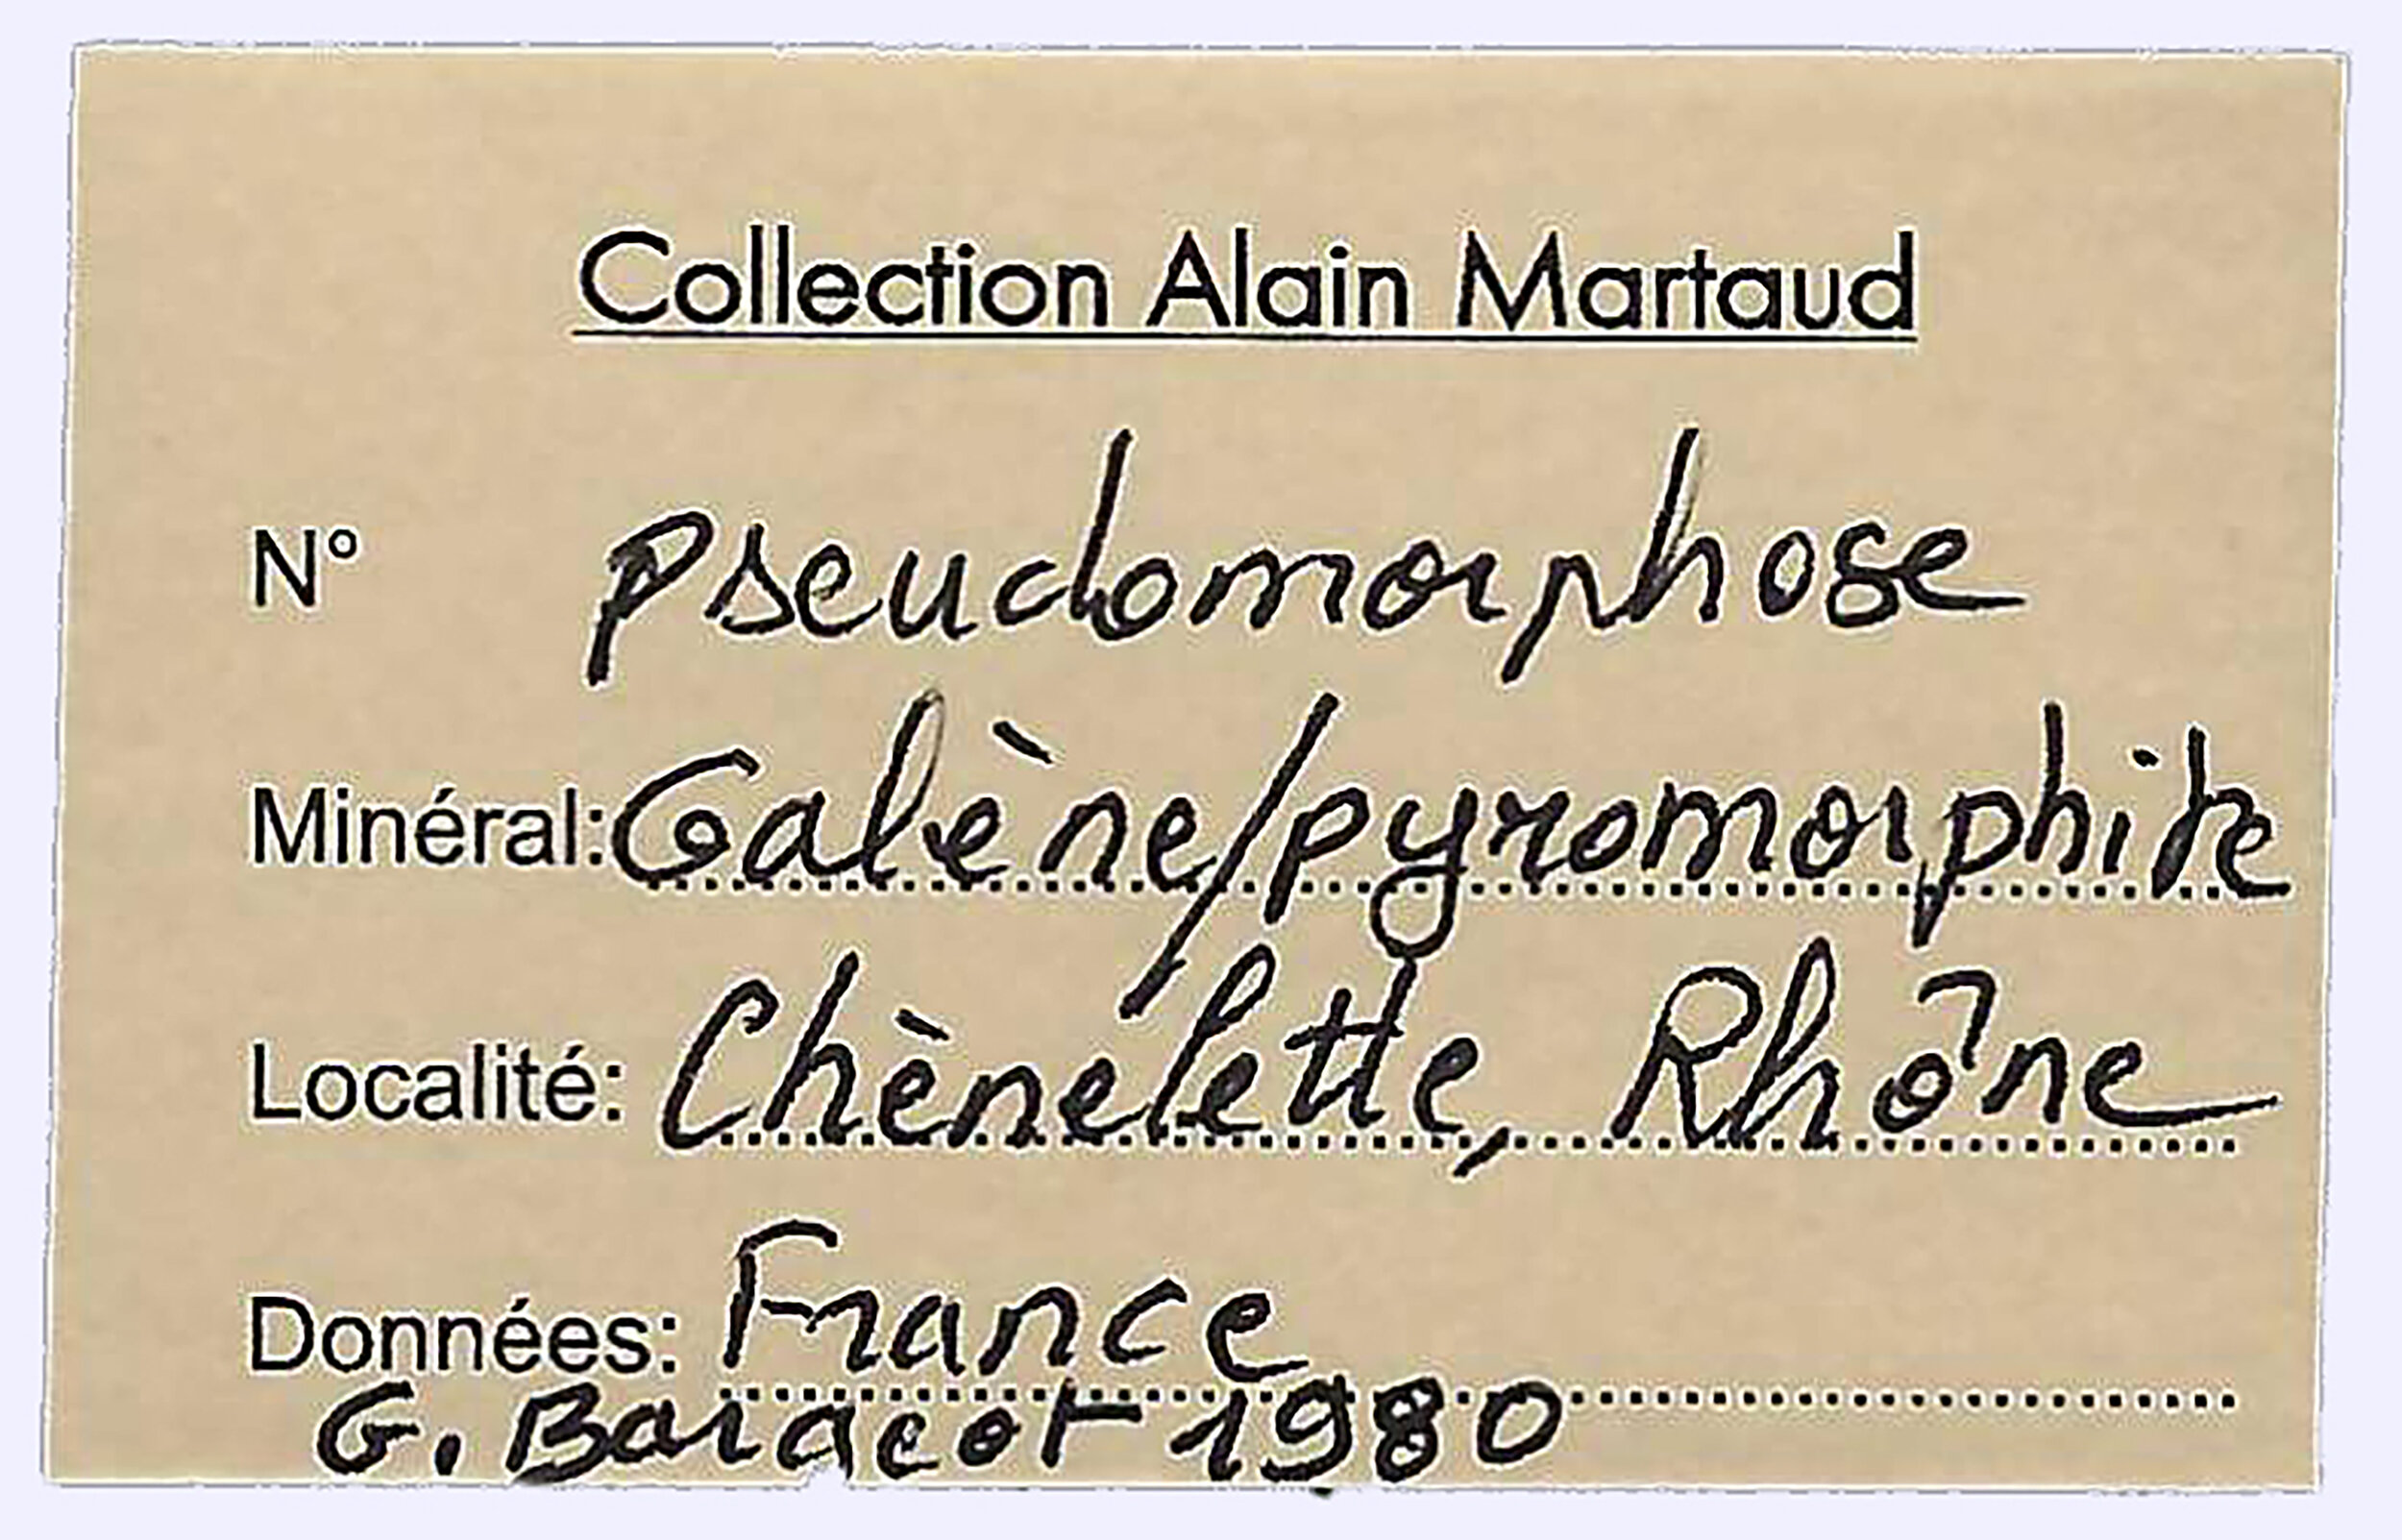 Collection Alain Martaud
N° pseudomorphose
Minéral: Galène/pyromorphite
Localité: Chènelette, Rhône
Données: France
G. 1980